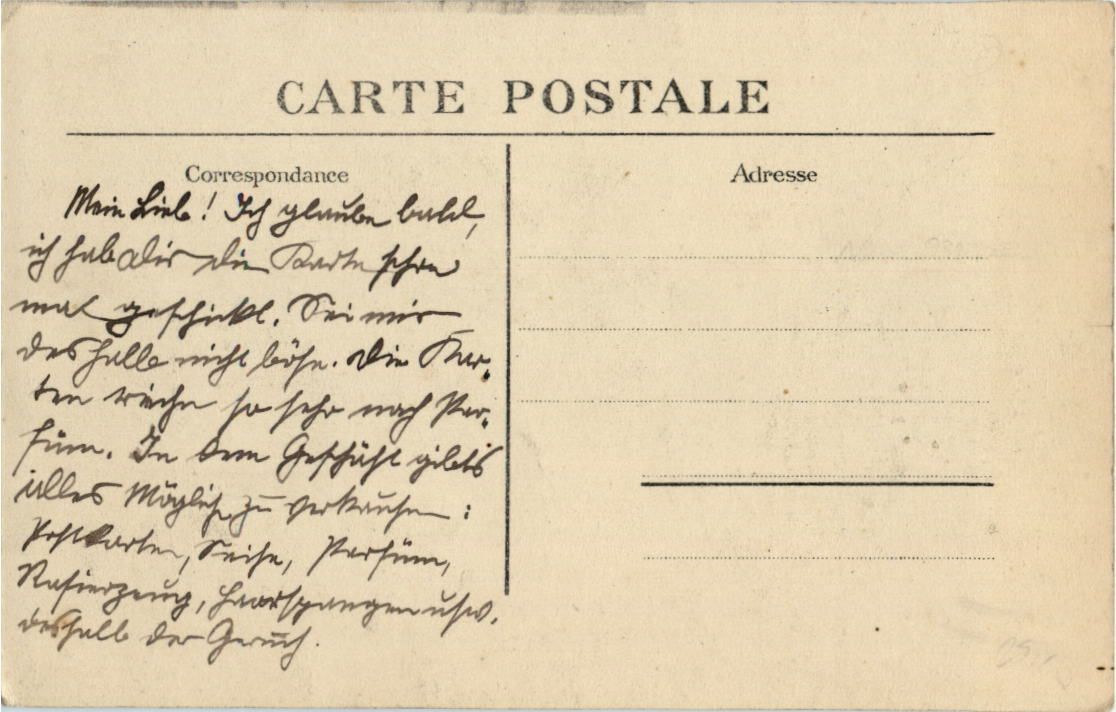 CARTE POSTALE
Correspondance
Adresse
Mein Lieb! Ich glaube bald,
ich hab dir die Karte schon
mal geschickt. Sei mir
deshalb nicht böse. Die Kar-
ten riechen so sehr nach Par-
füm. In dem Geschäft gibts
alles Mögliche zu verkaufen:
Postkarten, Seife, Parfüm,
Rasierzeug, Haarspangen usw.
deshalb der Geruch.